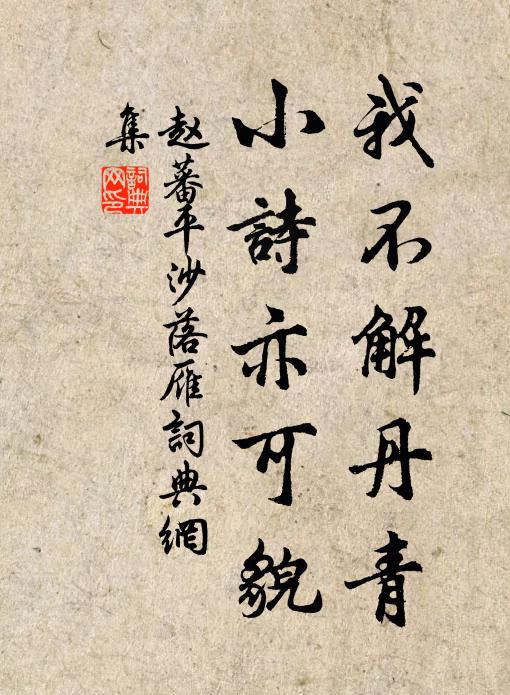 我不解丹青
小詩亦可貌
赵蕃平沙落雁詞典網
集
詞典網印